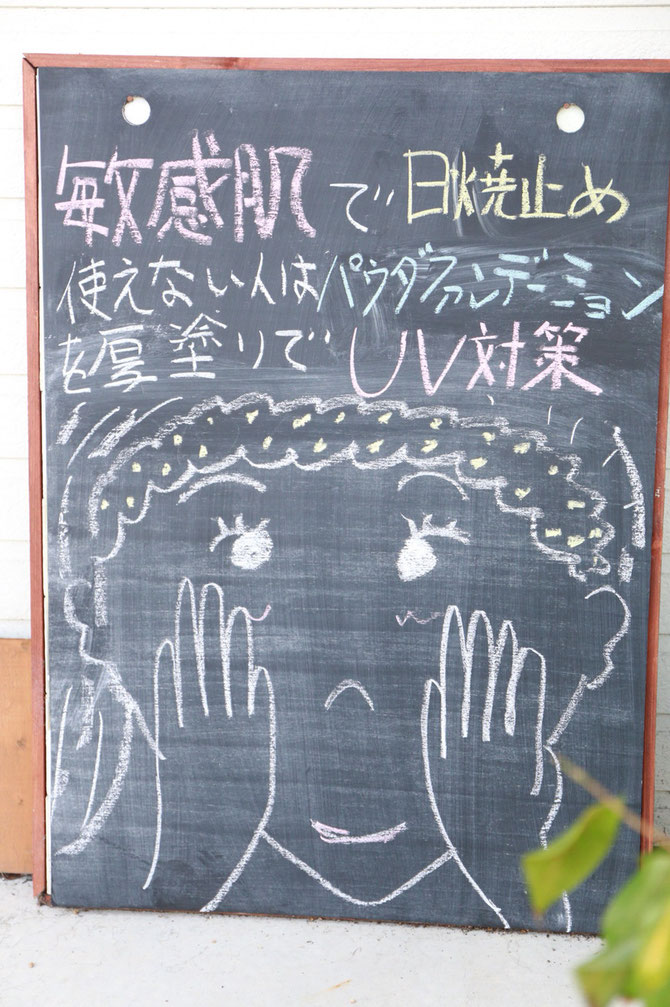 敏感肌で日焼止め
使えない人はパウダファンデーション
を厚塗りでUV対策